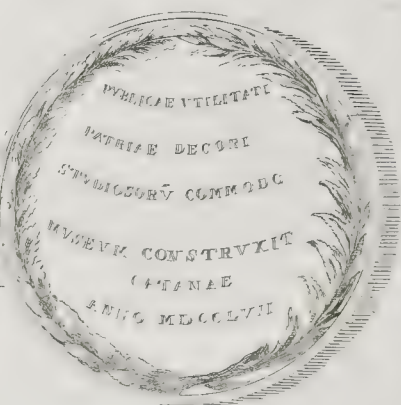 PVBLICAE VTILITATI
PATRIAE DECORI
STVDIOSORṼ COMMODO
MVSEVM CONSTRVXIT
CATANAE
ANNO MDCCLVII